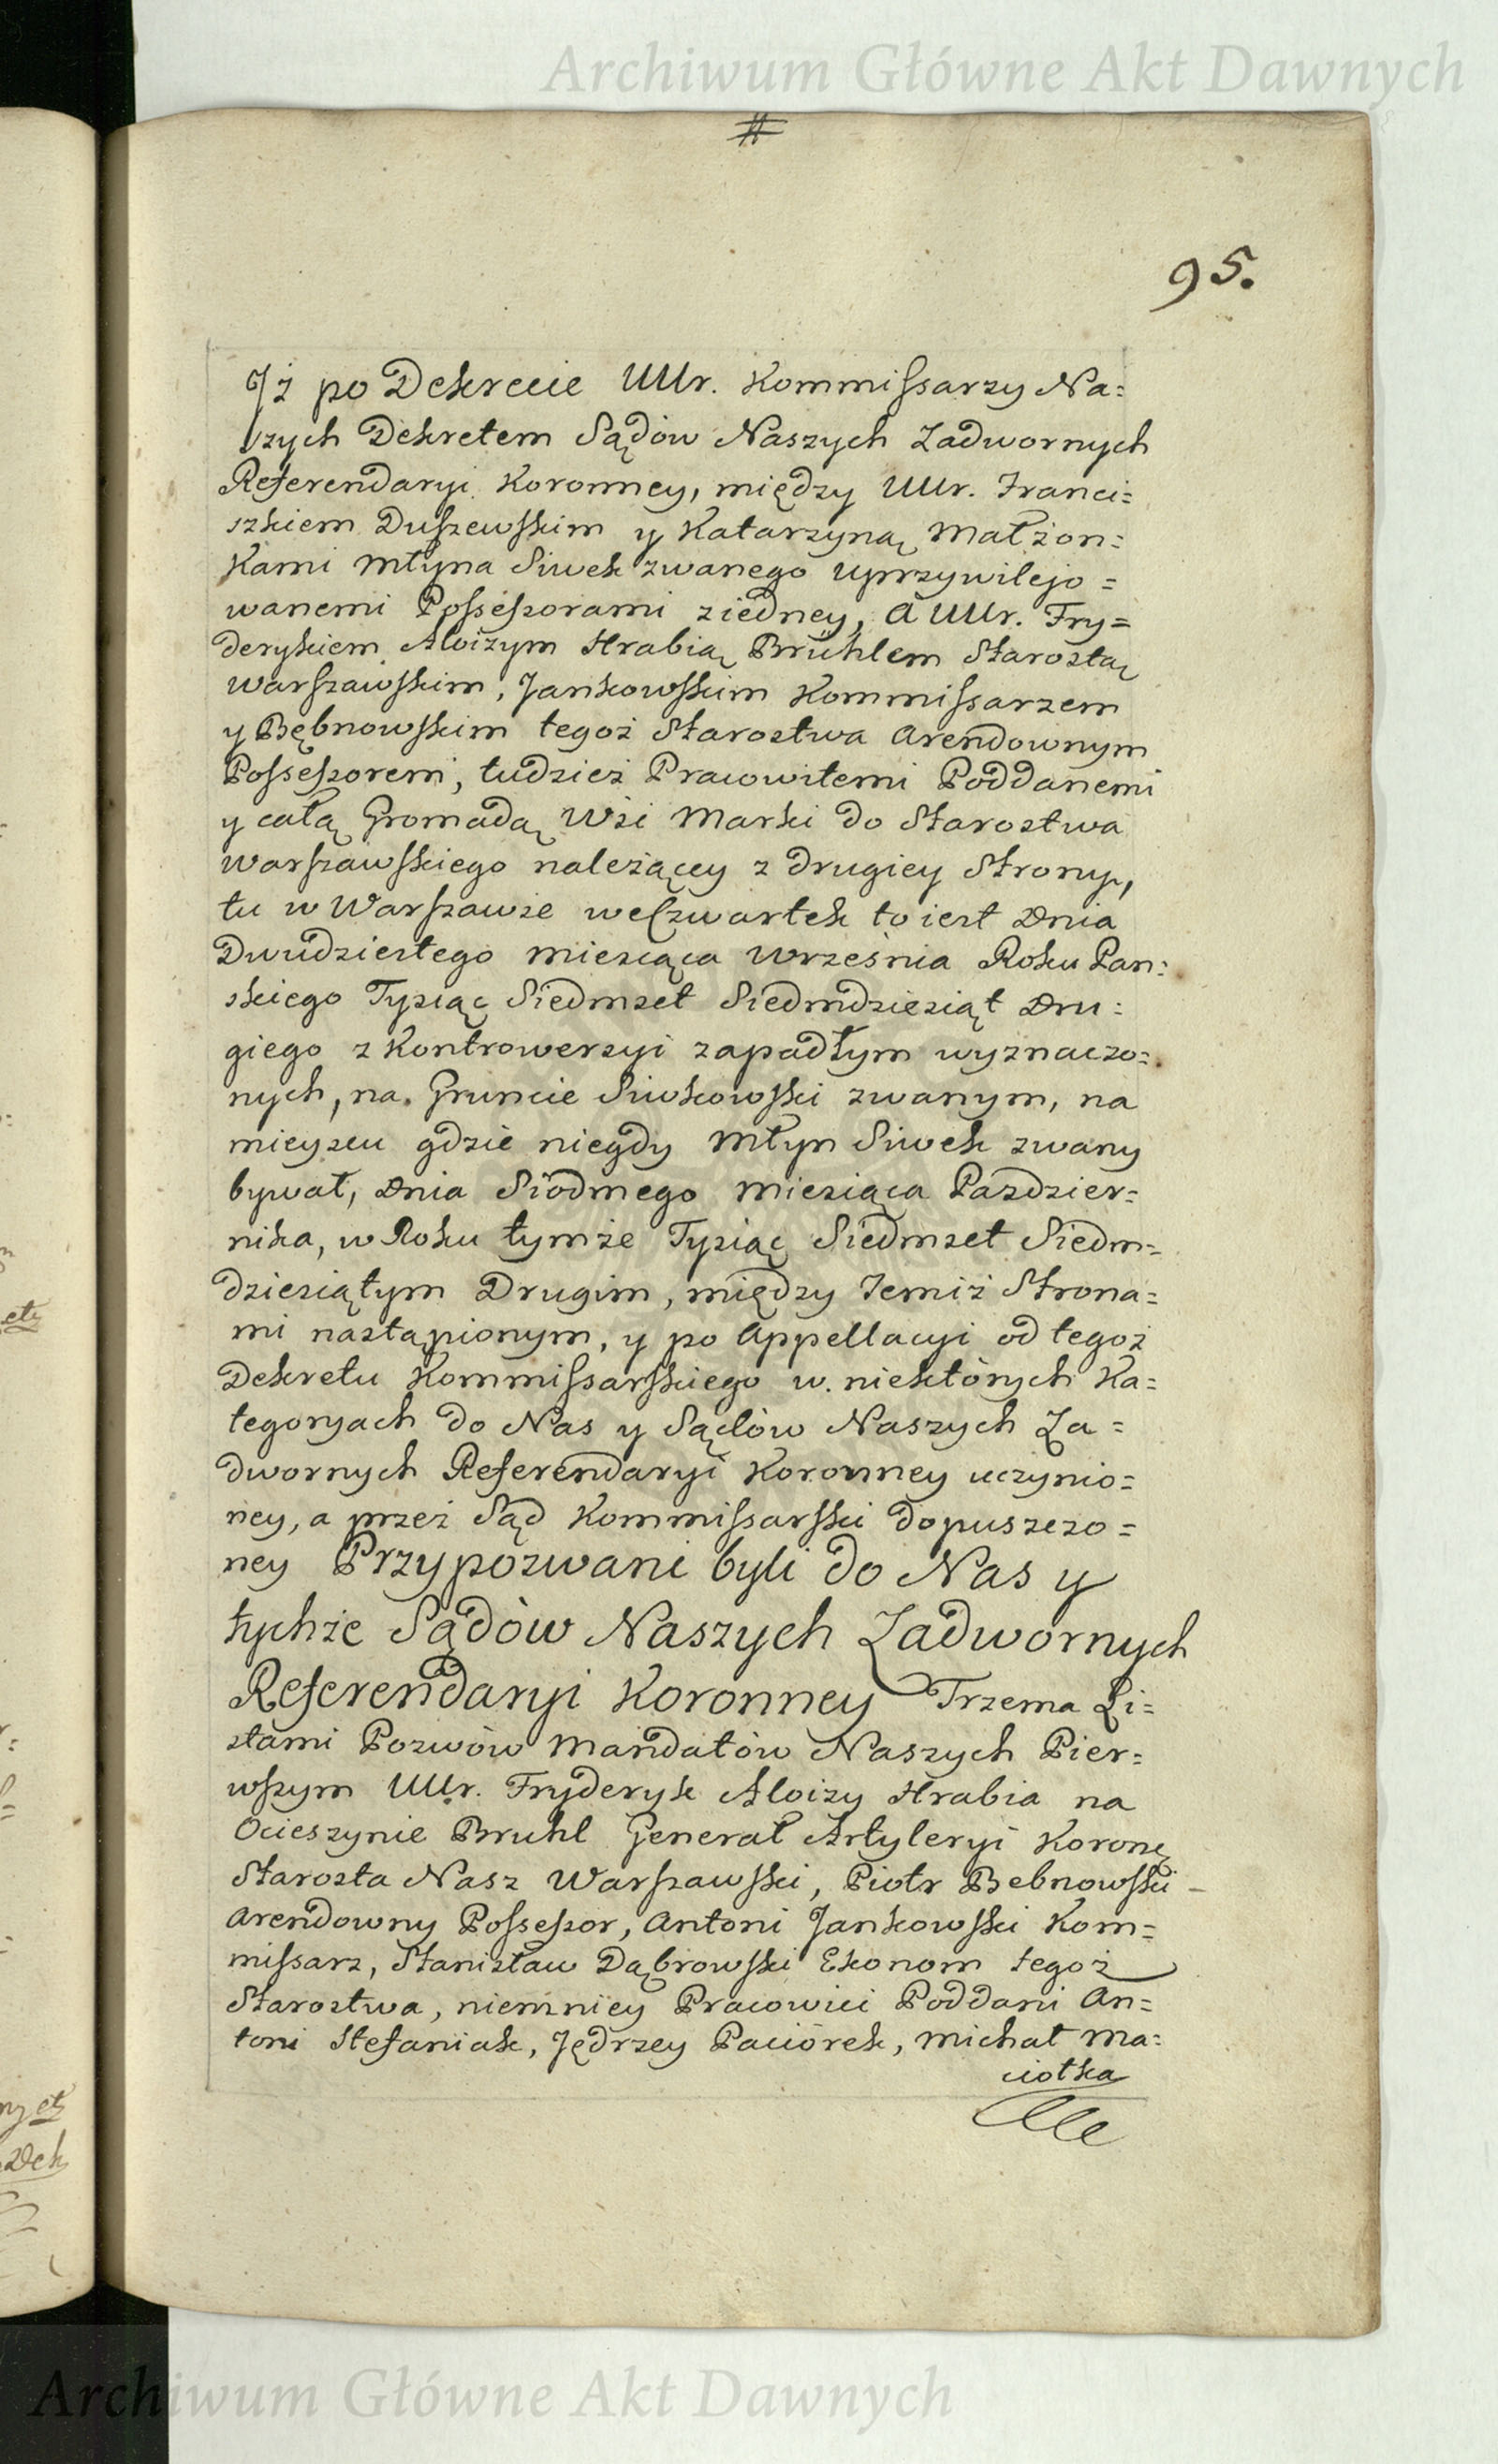 Archiwum Główne Akt Dawnych
#
95.
Jż po Dekrecie UUr. Kommissarzy Na=
szych Dekretem Sądów Naszych Zadwornych
Referendaryi Koronney, między UUr. Franci=
szkiem Duszewskim y Katarzyną Małżon=
kami Młyna Siwek zwanego uprzywilejo=
wanemi Possesorami ziedney, a UUr. Fry=
derykiem Aloizym Hrabią Brühlem Starostą
Warszawskim, Jankowskim Kommissarzem
y Bębnowskim tegoż Starostwa Arendownym
Possesorem, tudzież Pracowitemi Poddanemi
y całą Gromadą Wsi Marki do Starostwa
Warszawskiego należącey z drugiey Strony,
tu w Warszawie we Czwartek to iest Dnia
Dwudziestego miesiąca Września Roku Pan=
skiego Tysiąc Siedmset Siedmdziesiąt Dru=
giego z Kontrowersyi zapadłym wyznaczo=
nych, na Gruncie Siwkowski zwanym, na
mieyscu gdzie niegdy Młyn Siwek zwany
bywał, Dnia Siodmego Miesiąca Pazdzier=
nika, w Roku tymże Tysiąc Siedmset Siedm=
dziesiątym Drugim, między Temiż Strona=
mi nastąpionym, y po Appellacyi od tegoż
Dekretu Kommissarskiego w niektórych Ka=
tegoryach do Nas y Sądów Naszych Za=
dwornych Referendaryi Koronney uczynio=
ney, a przez Sąd Kommissarski dopuszczo=
ney Przypozwani byli do Nas y
tychże Sądów Naszych Zadwornych
Referendaryi Koronney Trzema Li=
stami Pozwów Mandatów Naszych Pier=
wszym UUr. Fryderyk Aloizy Hrabia na
Ocieszynie Bruhl Generał Artyleryi Koronę
Starosta Nasz Warszawski, Piotr Bebnowski
Arendowny Possesor, Antoni Jankowski Kom=
missarz, Stanisław Dąbrowski Ekonom tegoż
Starostwa, niemniey Pracowici Poddani An=
toni Stefaniak, Jędrzey Paciórek, Michał Ma=
ciołka
Archiwum Główne Akt Dawnych